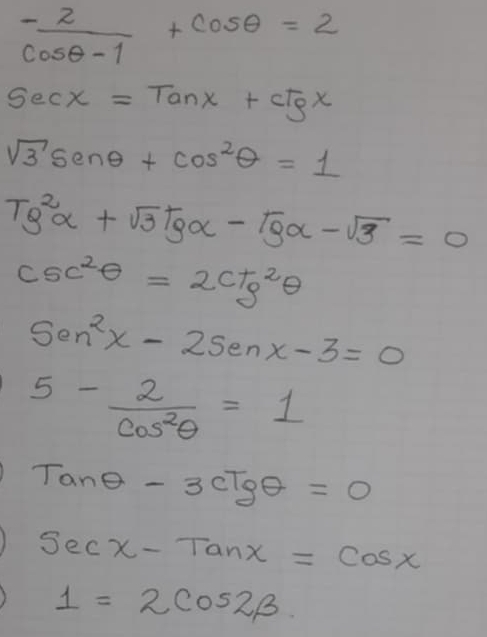 - 2/(cosθ - 1) + cosθ = 2
Secx = Tanx + ctgx
√3 Senθ + cos²θ = 1
Tg²α + √3 Tgα - Tgα - √3 = 0
csc²θ = 2ctg²θ
Sen²x - 2Senx - 3 = 0
) 5 - 2/Cos²θ = 1
) Tanθ - 3cTgθ = 0
) Secx - Tanx = Cosx
) 1 = 2Cos2β.